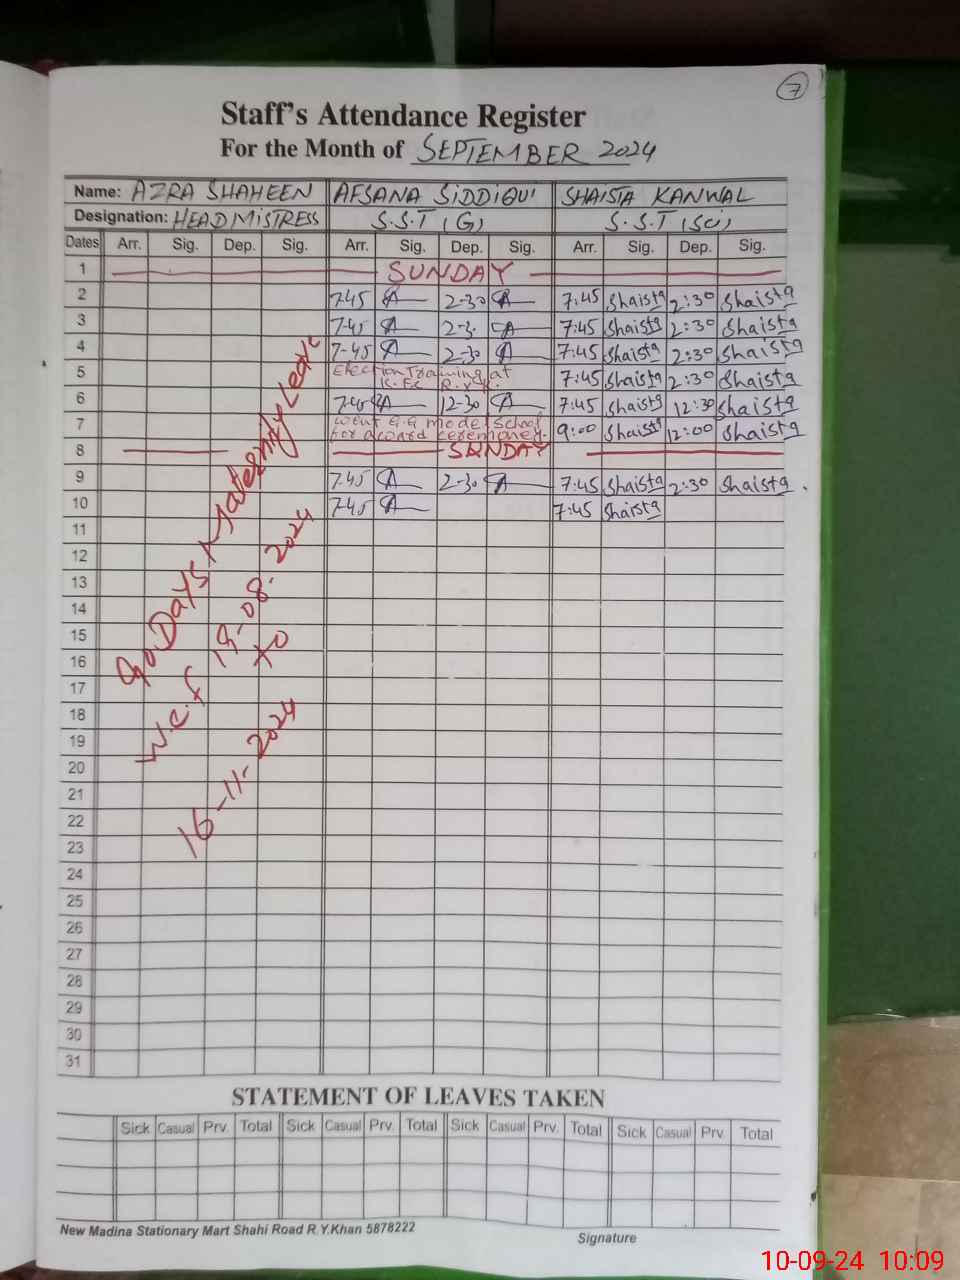 7
Staff's Attendance Register
For the Month of SEPTEMBER 2024
Name: AZRA SHAHEEN AFSANA SIDDIQUI SHAISTA KANWAL
Designation: HEADMISTRESS S.S.T (G) S.S.T (Sci)
Dates Arr. Sig. Dep. Sig. Arr. Sig. Dep. Sig. Arr. Sig. Dep. Sig.
1 SUNDAY
2 7-45 2-30 7:45 Shaista 2:30 Shaista
3 7-45 2-3. 7:45 Shaista 2:30 Shaista
4 7-45 2-30 7:45 Shaista 2:30 Shaista
5 Election Training at 7:45 Shaista 2:30 Shaista
K.Fe R.Y.K.
6 7-45 12-30 7:45 Shaista 12:30 Shaista
7 went G.G model School 9:00 Shaista 12:00 Shaista
for award ceremoney.
8 SUNDAY
9 7-45 2-30 7:45 Shaista 2:30 Shaista.
10 7-45 7:45 Shaista
11
12
13
14
15
16
17
18
19
20
21
22
23
24
25
26
27
28
29
30
31
90 DAYS Maternity Leave
W.e.f 19-08-2024
to
16-11-2024
STATEMENT OF LEAVES TAKEN
Sick Casual Prv. Total Sick Casual Prv. Total Sick Casual Prv. Total Sick Casual Prv. Total
New Madina Stationary Mart Shahi Road R.Y.Khan 5878222
Signature
10-09-24 10:09